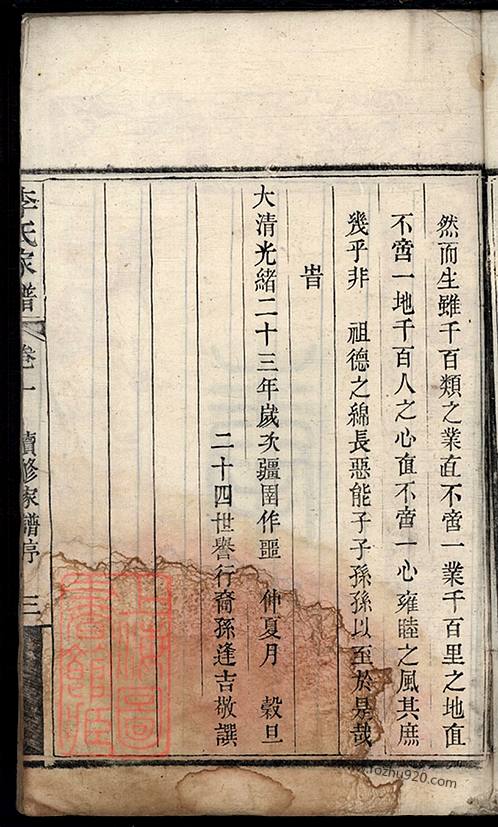 然而生雖千百類之業直不啻一業千百里之地直
不啻一地千百人之心直不啻一心雍睦之風其庶
幾乎非　祖德之綿長惡能子子孫孫以至於是哉
旹
大清光緒二十三年歲次疆圉作噩　仲夏月　穀旦
二十四世譽行裔孫逢吉敬譔
李氏家譜　卷一　續修家譜序　三
www.lozhu920.com